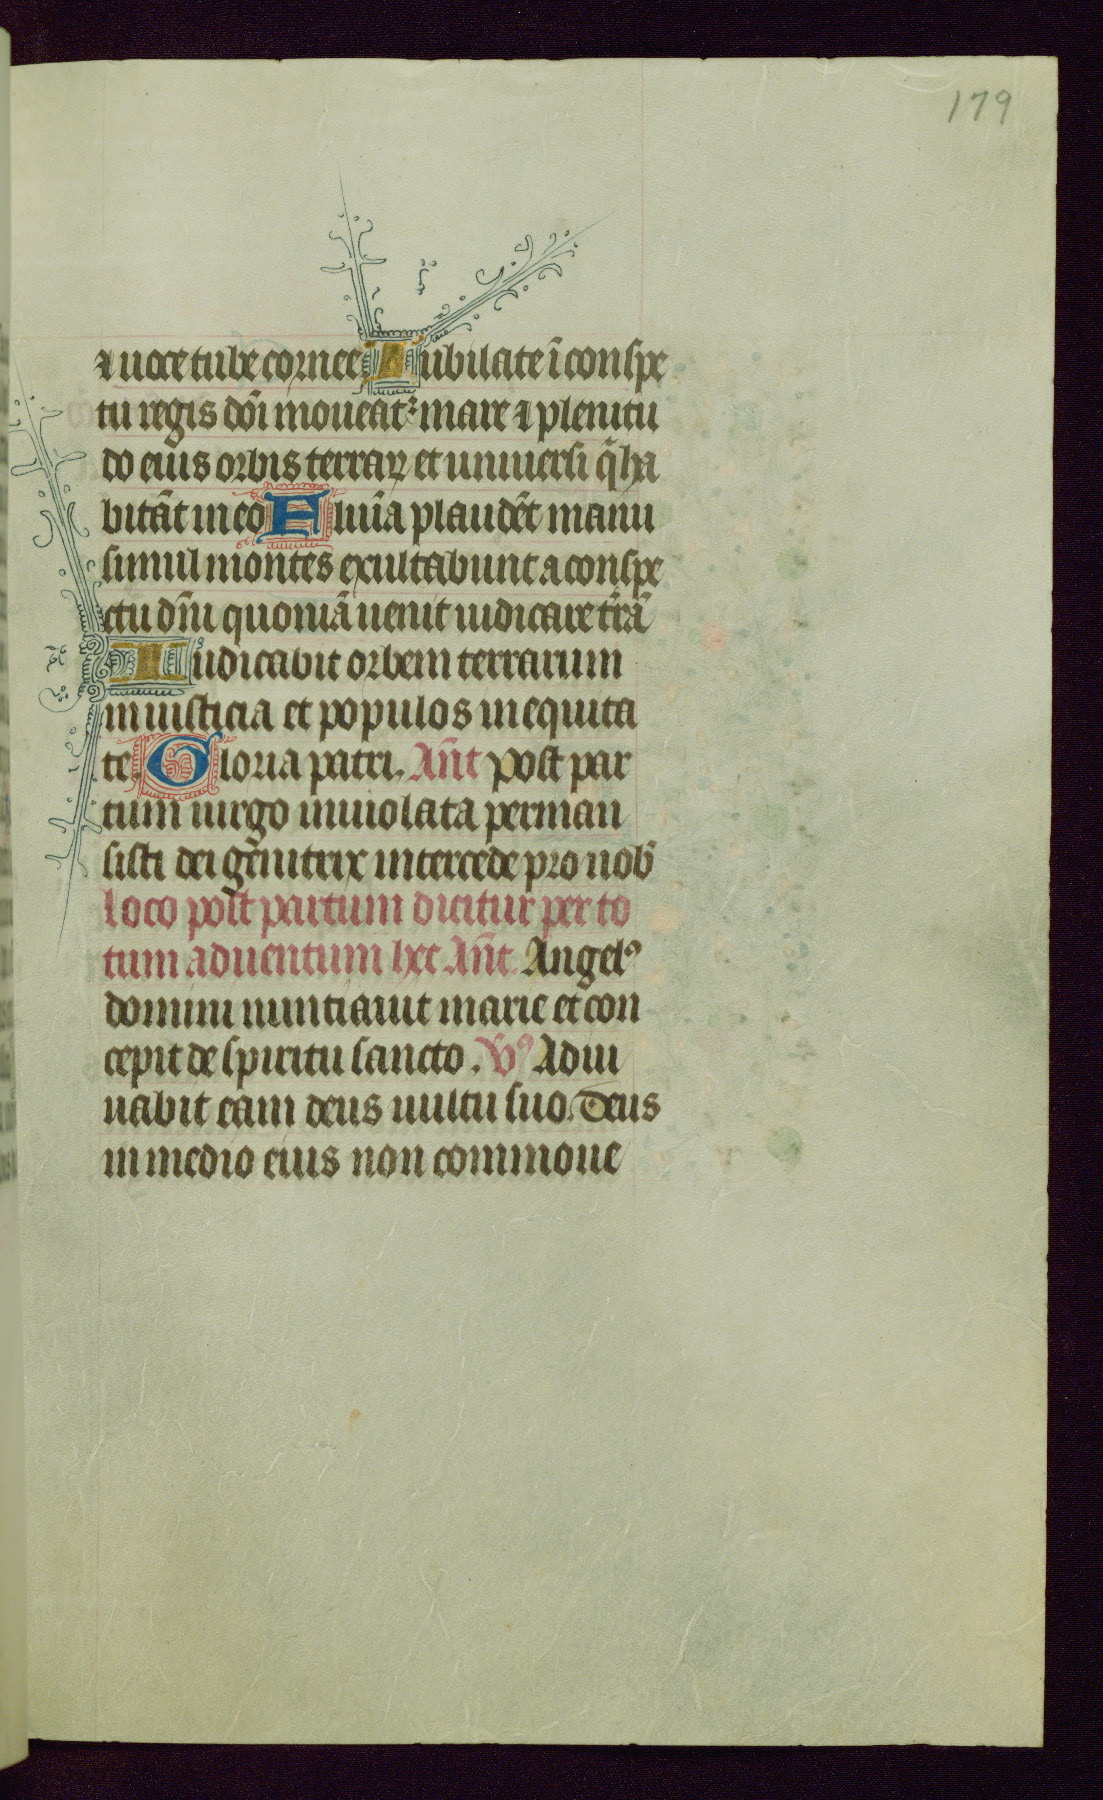 179
⁊ uoce tube cornee Iubilate ī conspe
tu regis dn̄i moueat᷑ mare ⁊ plenitu
do eius orbis terraꝝ et uniuersi q̄ ha
bitāt in eo Flūīa plaudēt manu
simul montes exultabunt a conspe
ctu dn̄i quoniā uenit iudicare t̄rā
Iudicabit orbem terrarum
in iusticia et populos in equita
te Gloria patri. An̄t post par
tum uirgo inuiolata perman
sisti dei genitrix intercede pro nob̄
loco post partum dicitur per to
tum aduentum hec An̄t. Angelꝰ
domini nuntiauit marie et con
cepit de spiritu sancto. Vꝰ Adiu
uabit eam deus uultu suo. Deus
in medio eius non commoue